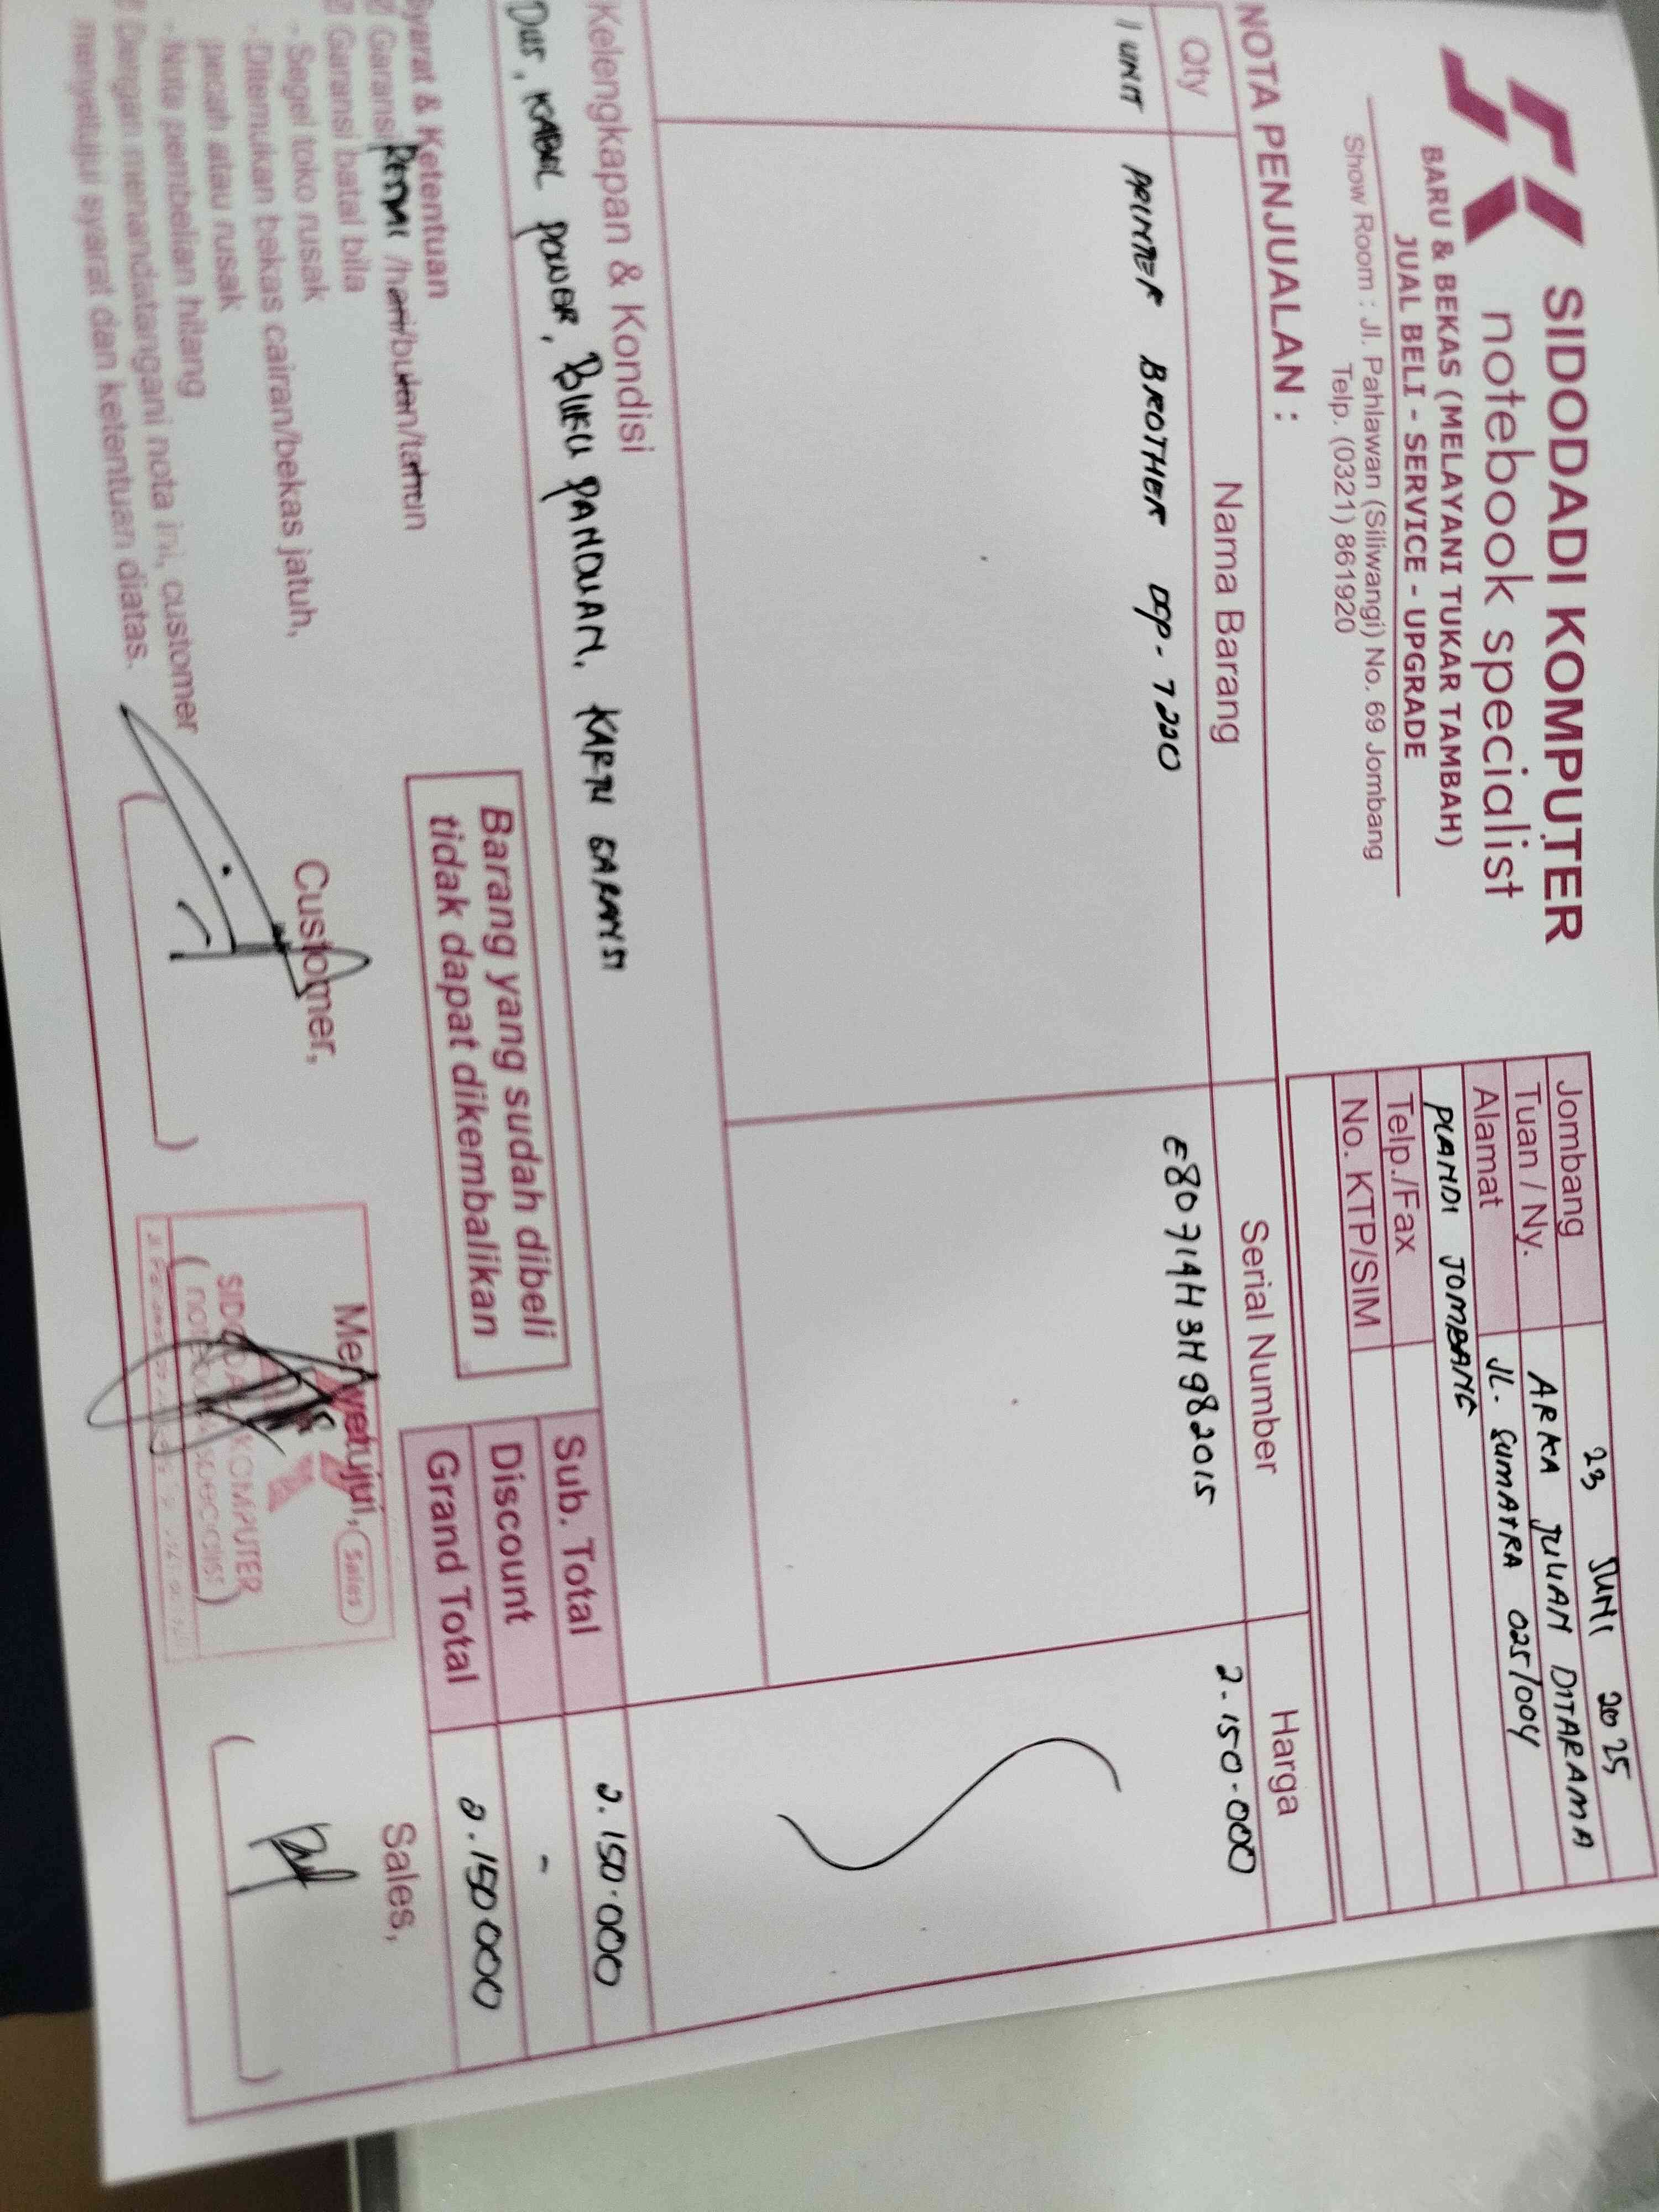 SIDODADI KOMPUTER
notebook specialist
BARU & BEKAS (MELAYANI TUKAR TAMBAH)
JUAL BELI - SERVICE - UPGRADE
Show Room : Jl. Pahlawan (Siliwangi) No. 69 Jombang
Telp. (0321) 861920
Jombang 23 JUNI 2025
Tuan / Ny. ARKA JULIAN DITARAMA
Alamat JL. SUMATRA 025/004
PLANDI JOMBANG
Telp./Fax
No. KTP/SIM
NOTA PENJUALAN :
Qty Nama Barang Serial Number Harga
1 UNIT PRINTER BROTHER DCP-T220 E80714H3H982015 2.150.000
Kelengkapan & Kondisi
DUS, KABEL POWER, BUKU PANDUAN, KARTU GARANSI
Sub. Total 2.150.000
Discount -
Grand Total 2.150.000
Barang yang sudah dibeli
tidak dapat dikembalikan
Syarat & Ketentuan
Garansi RESMI /hari/bulan/tahun
Garansi batal bila
- Segel toko rusak
- Ditemukan bekas cairan/bekas jatuh,
pecah atau rusak
- Nota pembelian hilang
Dengan menandatangani nota ini, customer
menyetujui syarat dan ketentuan diatas.
Customer,
Menyetujui,
Sales
SIDODADI KOMPUTER
Sales,